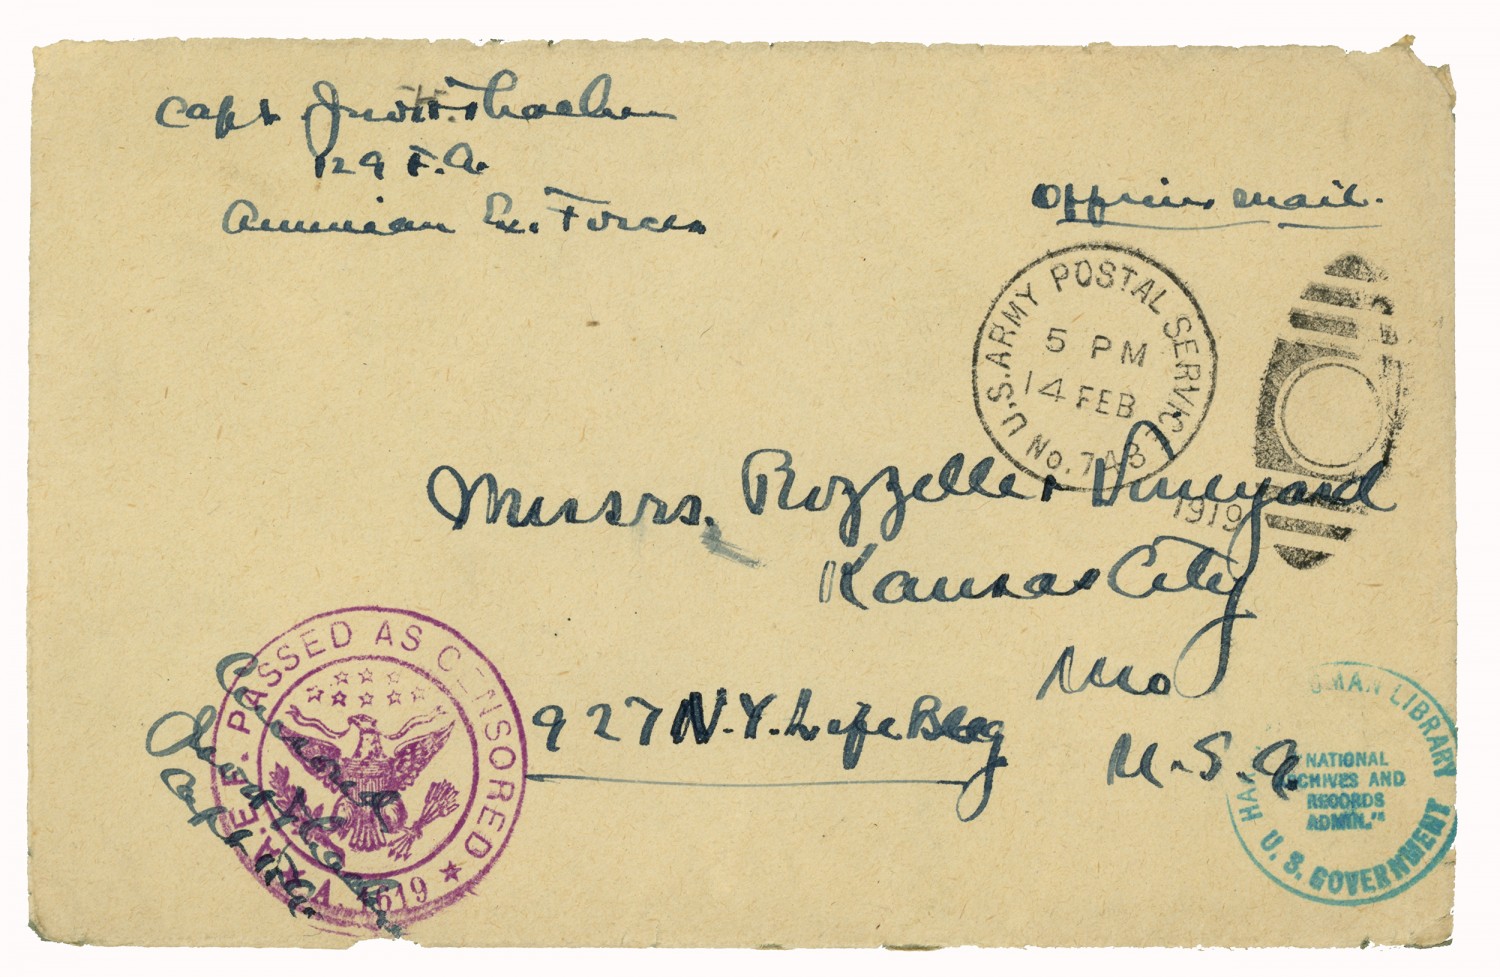 Capt Jno. H. Thacher
129 F.A.
American Ex. Forces
Officers Mail.
U.S. ARMY POSTAL SERVICE
5 PM
14 FEB
No. 7A3
1919
Messrs. Rozzelle & Vineyard
Kansas City
Mo
927 N.Y. Life Bldg
U.S.A.
PASSED AS CENSORED
A.E.F.
A. 1619
Censored
Jno H Thacher
Capt
HARRY S. TRUMAN LIBRARY
NATIONAL
ARCHIVES AND
RECORDS
ADMIN."
U.S. GOVERNMENT